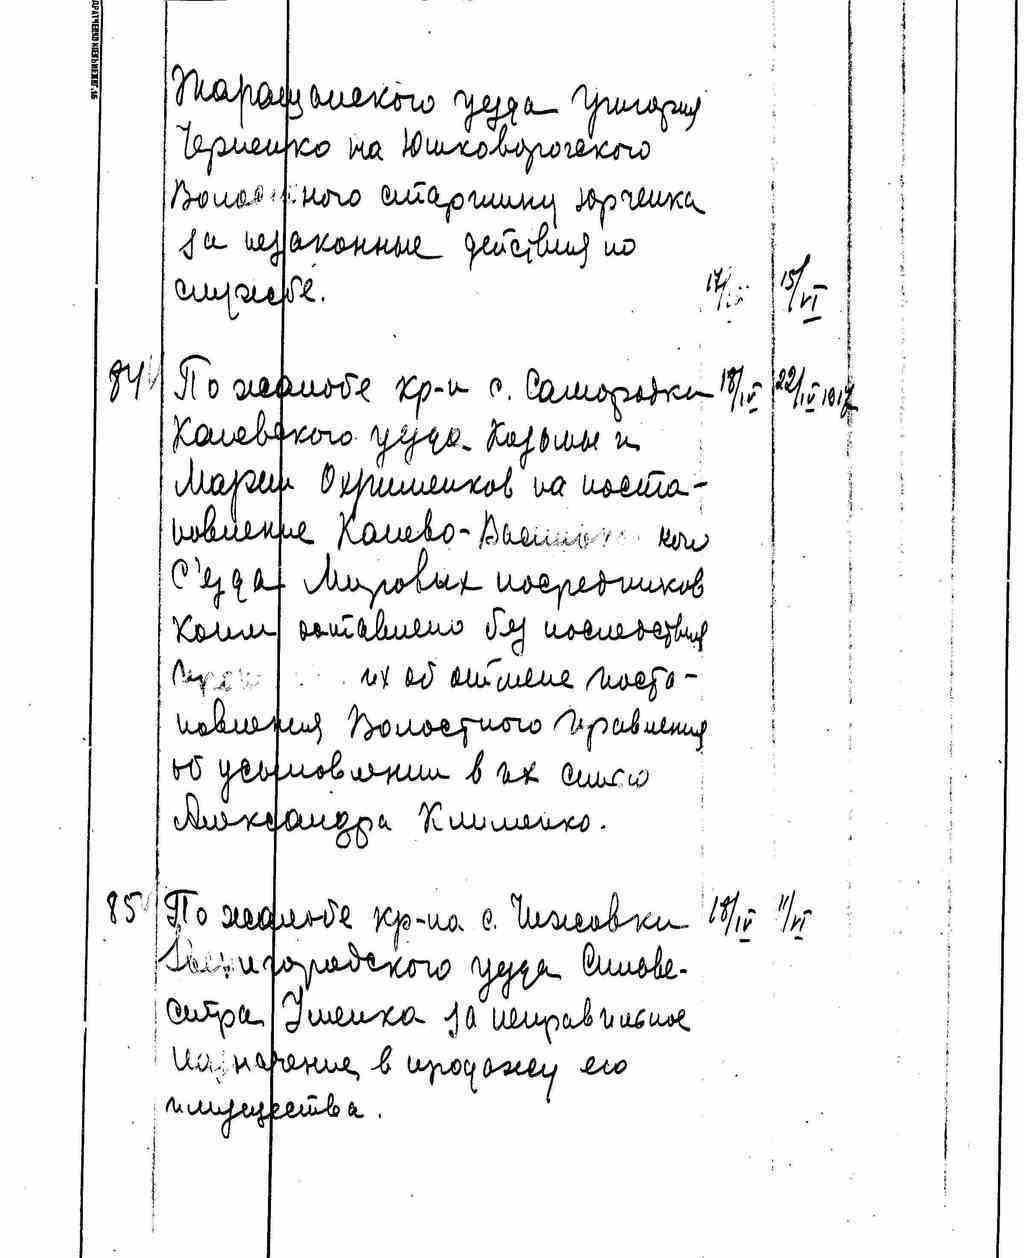 Таращанского уезда Григория
Черненко на Юшковорогского
Волостного старшину Юрченка
за незаконные действия по
службе. 17/IV 15/VI
84 По жалобе кр-н с. Самородки 18/IV 22/IV 1917
Каневского уезда Козьмы и
Марии Охрименков на поста-
новление Канево- ком
С'езда Мировых посредников
коим оставлено без последствия
их об отмене поста-
новления Волостного Правления
об усыновлении в их семью
Александра Клименко.
85 По жалобе кр-на с. Чижовки 18/IV 11/VI
Звенигородского уезда Сильве-
стра Уменка за неправильное
назначение в продажу его
имущества.